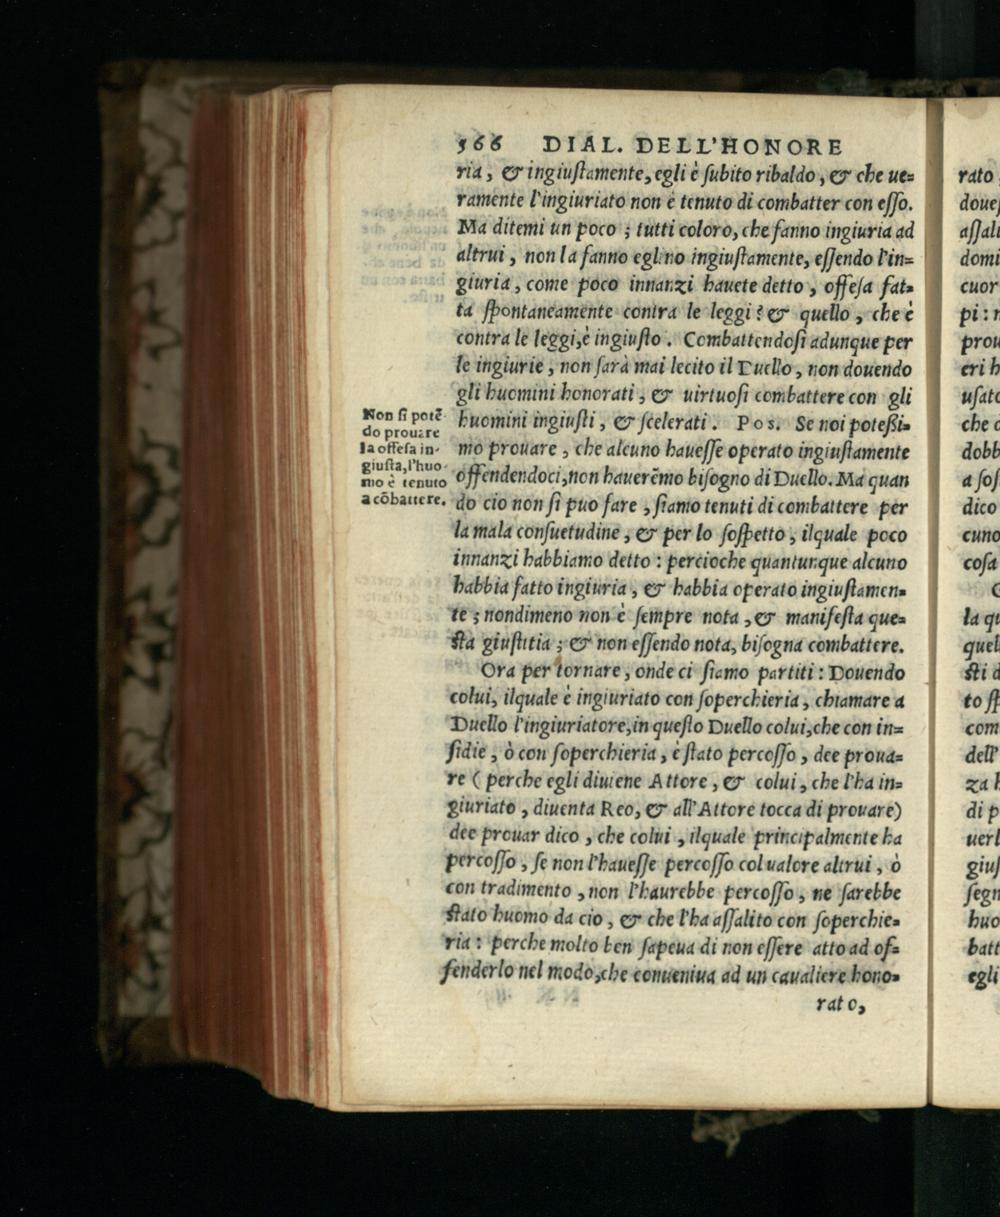 566 DIAL. DELL'HONORE
ria, & ingiuſtamente, egli è ſubito ribaldo, & che ue=
ramente l'ingiuriato non è tenuto di combatter con eſſo.
Ma ditemi un poco ; tutti coloro, che fanno ingiuria ad
altrui, non la fanno eglino ingiuſtamente, eſſendo l'in=
giuria, come poco innanzi hauete detto, offeſa fat=
ta ſpontaneamente contra le leggi? & quello, che è
contra le leggi, è ingiuſto. Combattendoſi adunque per
le ingiurie, non ſarà mai lecito il Duello, non douendo
gli huomini honorati, & uirtuoſi combattere con gli
huomini ingiuſti, & ſcelerati. Pos. Se noi poteßi=
mo prouare, che alcuno haueſſe operato ingiuſtamente
offendendoci, non hauerẽmo biſogno di Duello. Ma quan
do cio non ſi puo fare, ſiamo tenuti di combattere per
la mala conſuetudine, & per lo ſoſpetto, ilquale poco
innanzi habbiamo detto : percioche quantunque alcuno
habbia fatto ingiuria, & habbia operato ingiuſtamen=
te ; nondimeno non è ſempre nota, & manifeſta que=
ſta giuſtitia ; & non eſſendo nota, biſogna combattere.
Ora per tornare, onde ci ſiamo partiti : Douendo
colui, ilquale è ingiuriato con ſoperchieria, chiamare a
Duello l'ingiuriatore, in queſto Duello colui, che con in=
ſidie, ò con ſoperchieria, è ſtato percoſſo, dee proua=
re ( perche egli diuiene Attore, & colui, che l'ha in=
giuriato, diuenta Reo, & all'Attore tocca di prouare)
dee prouar dico, che colui, ilquale principalmente ha
percoſſo, ſe non l'haueſſe percoſſo col ualore altrui, ò
con tradimento, non l'haurebbe percoſſo, ne ſarebbe
ſtato huomo da cio, & che l'ha aſſalito con ſoperchie=
ria : perche molto ben ſapeua di non eſſere atto ad of=
fenderlo nel modo, che conueniua ad un caualiere hono=
rato,
Non ſi potẽ
do prouare
la offeſa in-
giuſta, l'huo-
mo è tenuto
a cõbattere.
rato
doueſ
aſſali
domi
cuor
pi : n
prou
eri h
uſato
che c
dobb
a ſoſ
dico
cuno
coſa
la qu
quel
ſti d
to ſp
com
dell'
za h
di p
uerl
giuſ
ſegn
huo
batt
egli